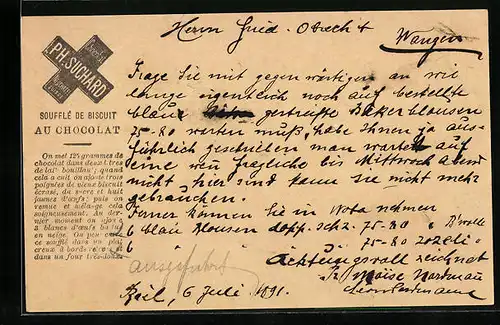 Herrn Fried. Obrecht
Wangen
PH. SUCHARD
SOUFFLÉ DE BISCUIT
AU CHOCOLAT
On met 125 grammes de
chocolat dans deux litres
de lait bouillon; quand
cela a cuit on ajoute trois
poignées de vieux biscuit
écrasé, du sucre et huit
jaunes d'œufs; puis on
remue et mélange cela
soigneusement. Au der-
nier moment on ajoute
3 blancs d'œufs battus
en neige. On peut cuire
ce soufflé dans un plat
creux à bords évasés
dans un four très doux.
Frage Sie mit gegenwärtigem an wie
lange eigentlich noch auf bestellte
blau gestreifte Bäkerblousen
75-80 warten muß, habe Ihnen ja aus-
führlich geschrieben man wartet auf
eine nun fragliche bis Mittwoch Abend
nicht hier sind kann Sie nicht mehr
gebrauchen.
Ferner können Sie in Nota nehmen
6 blau Blousen dopp. sch. 75-80
6 " " " 75-80
Achtungsvoll zeichnet
Moise Nordmann
ausgeführt
Biel, 6 Juli 1891.